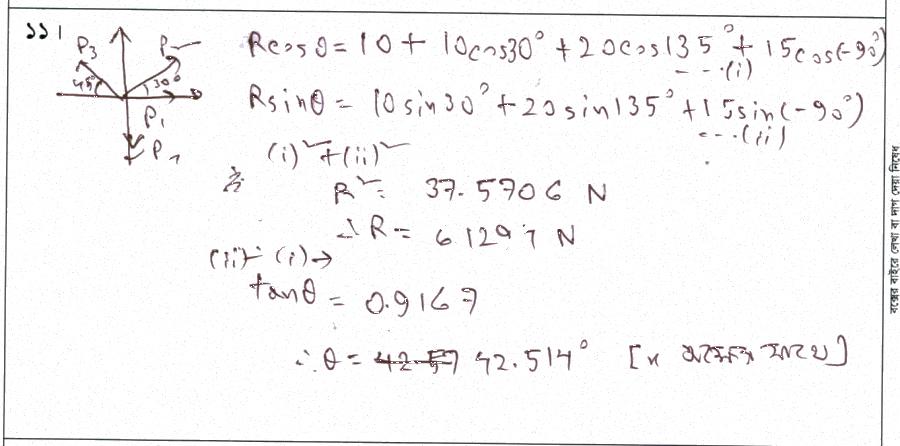 ১১।
P₃ P₂
45° 30°
P₁
P₄
Rcosθ = 10 + 10cos30° + 20cos135° + 15cos(-90°)
---(i)
Rsinθ = 10sin30° + 20sin135° + 15sin(-90°)
---(ii)
(i)² + (ii)²
R² = 37.5706 N
∴ R = 6.1297 N
(ii) ÷ (i) →
tanθ = 0.9167
∴ θ = 42.514° [x অক্ষের সাথে]
বক্সের বাইরে লেখা বা দাগ দেয়া নিষেধ